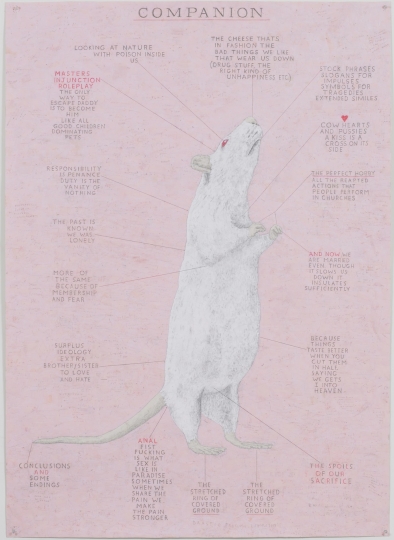 COMPANION
LOOKING AT NATURE
WITH POISON INSIDE
US
THE CHEESE THATS
IN FASHION THE
BAD THINGS WE LIKE
THAT WEAR US DOWN
(DRUG STUFF, THE
RIGHT KIND OF
UNHAPPINESS ETC)
STOCK PHRASES
SLOGANS FOR
IMPULSES
SYMBOLS FOR
TRAGEDIES
EXTENDED SIMILES
MASTERS
INJUNCTION
ROLEPLAY
THE ONLY
WAY TO
ESCAPE
IS TO BECOME
HIM
LIKE ALL
GOOD CHILDREN
DOMINATING
PETS
COW HEARTS
AND PUSSIES
A KISS IS A
CROSS ON ITS
SIDE
RESPONSIBILITY
IS PENANCE
DUTY IS THE
VANITY OF
NOTHING
THE PERFECT HOBBY
ALL THE
ACTIONS THAT
PEOPLE PERFORM
IN CHURCHES
THE PAST IS
KNOWN
WE WAS
LONELY
AND NOW WE
ARE NAKED
EVEN THOUGH
IT SLOWS US
DOWN IT
INSULATED
SUFFICIENTLY
MORE OF
THE SAME
BECAUSE OF
MEMBERSHIP
AND FEAR
SURPLUS
IDEOLOGY
EXTRA
BROTHER/SISTER
TO LOVE
AND HATE
BECAUSE
THINGS
TASTE BETTER
WHEN YOU
CUT THEM
IN HALF
SAYING
WE GETS
INTO
HEAVEN
CONCLUSIONS
AND
SOME
ENDINGS
ANAL
FIST
FUCKING
IS WHAT
SEX IS
LIKE IN
PARADISE
SOMETIMES
WHEN WE
SHARE THE
PAIN WE
MAKE
THE PAIN
STRONGER
THE
STRETCHED
RING OF
COVERED
GROUND
THE
STRETCHED
RING OF
COVERED
GROUND
THE SPOILS
OF OUR
SACRIFICE